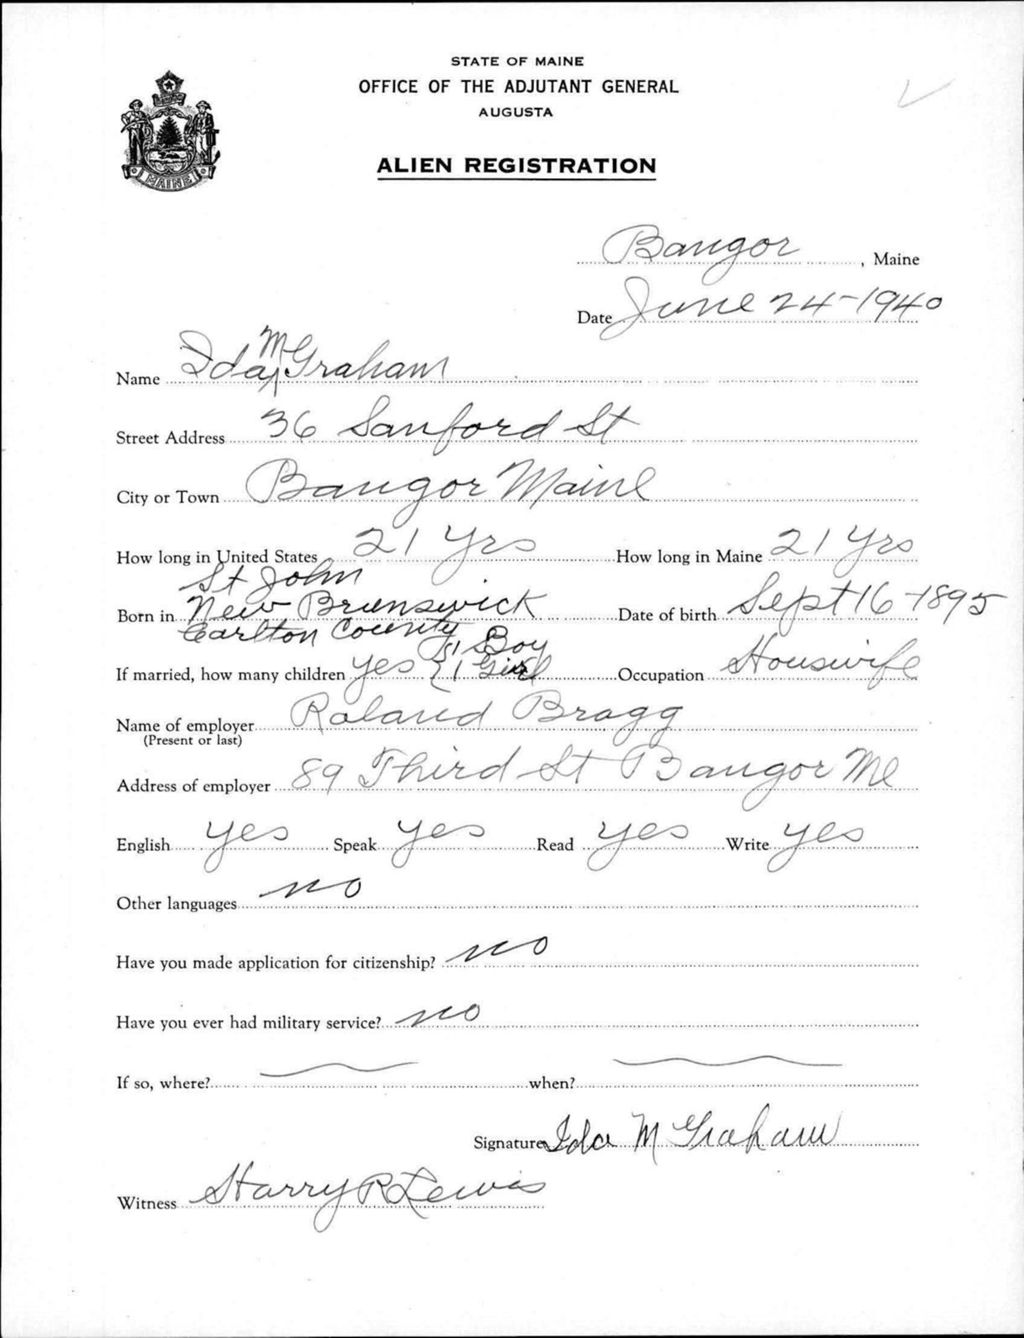 STATE OF MAINE
OFFICE OF THE ADJUTANT GENERAL
AUGUSTA
ALIEN REGISTRATION
MAINE
Bangor, Maine
Date June 24-1940
Name Ida M Graham
Street Address 36 Sanford St
City or Town Bangor Maine
How long in United States 21 Yrs How long in Maine 21 Yrs
St John
Born in New Brunswick Date of birth Sept 16-1895
Carlton County
1 Boy
If married, how many children yes 1 Girl Occupation Housewife
Name of employer Roland Bragg
(Present or last)
Address of employer 89 Third St Bangor Me
English yes Speak yes Read yes Write yes
Other languages no
Have you made application for citizenship? no
Have you ever had military service? no
If so, where? when?
Signature Ida M Graham
Witness Harry R Lewis